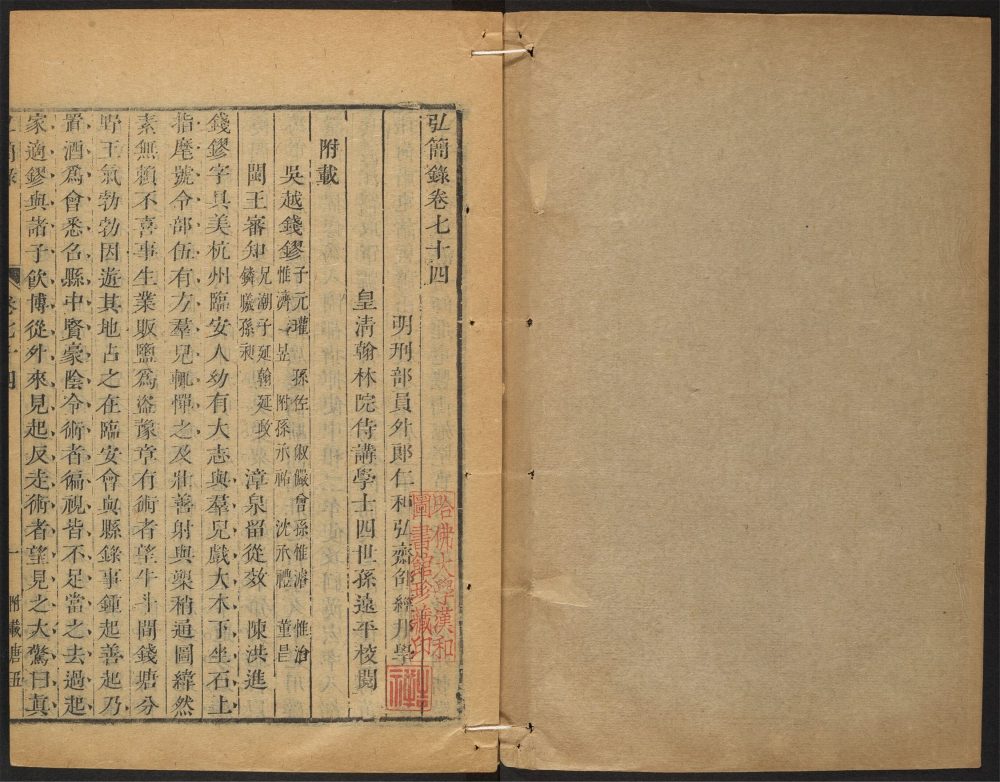 弘簡錄卷七十四
明刑部員外郎仁和弘齋邵經邦學
皇清翰林院侍講學士四世孫遠平校閱
附載
吳越錢鏐子元瓘 孫佐 俶 儼 曾孫惟濬 惟治
惟濟 昱 附孫承祐 沈承禮 董昌
閩王審知兄潮 子延翰 延政 漳泉留從效 陳洪進
鏻 曦 孫昶
錢鏐字具美杭州臨安人幼有大志與羣兒戲大木下坐石上
指麾號令部伍有方羣兒輒憚之及壯善射與槊稍通圖緯然
素無賴不喜事生業販鹽爲盜豫章有術者望牛斗間錢塘分
野王氣勃勃因遊其地占之在臨安會與縣錄事鍾起善起乃
置酒爲會悉召縣中賢豪陰令術者徧視皆不足當之去過起
家適鏐與諸子飲博從外來見起反走術者望見之大驚曰眞
弘簡錄 卷七十四 一 附載唐五
哈佛大學漢和
圖書館珍藏印